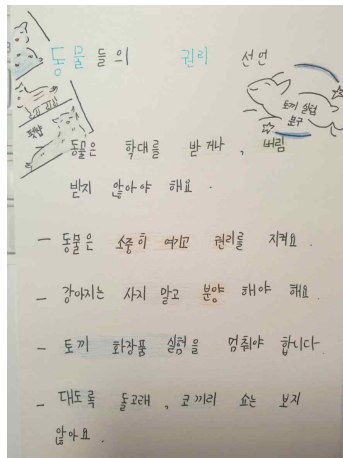 동물들의 권리 선언
펫샵
토끼 실험
문구
동물은 학대를 받거나, 버림
받지 않아야 해요.
- 동물은 소중히 여기고 권리를 지켜요.
- 강아지는 사지 말고 분양 해야 해요.
- 토끼 화장품 실험을 멈춰야 합니다
- 대도록 돌고래, 코끼리 쇼는 보지
않아요.